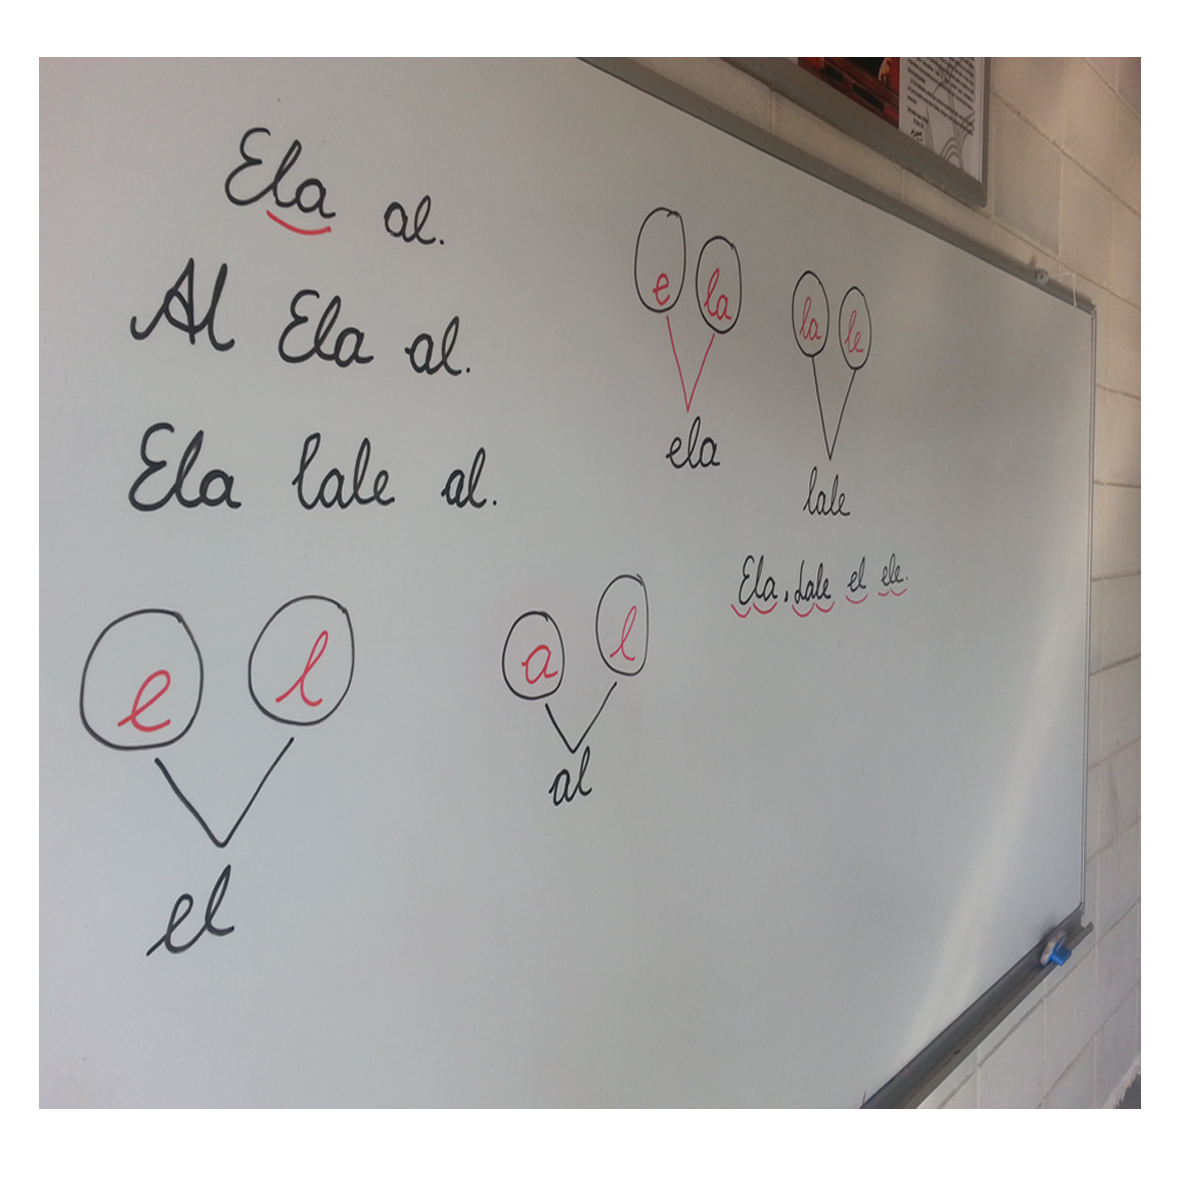 Ela al.
Al Ela al.
Ela lale al.
e l
el
a l
al
e la
ela
la le
lale
Ela, Lale el ele.